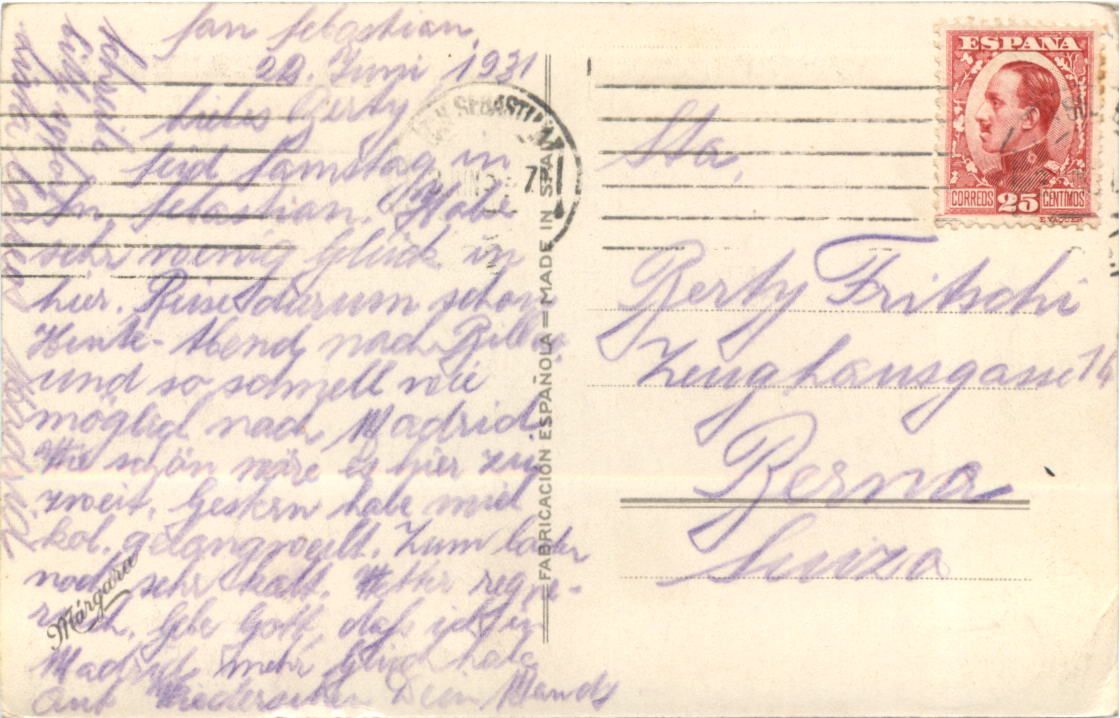 San Sebastian,
22. Juni 1931
Liebes Berty
Seid Samstag in
Sn Sebastian. Habe
sehr wenig Glück in
hier. Reise darum schon
Heute-Abend nach Bilbao
und so schnell wie
möglich nach Madrid.
Wie schön wäre es hier zu
zweit. Gestern habe mich
kol. gelangweilt. Zum
noch sehr kalt. Wetter regne-
risch. Gebe Gott, dass ich in
Madrid mehr Glück habe
Auf Wiedersehen Dein
Schreib
bitte
Madrid
Márgara
FABRICACIÓN ESPAÑOLA - MADE IN SPAIN
SAN SEBASTIAN
ESPAÑA
CORREOS 25 CENTIMOS
E. VAQUER
Sta.
Berty Fritschi
Zeughausgasse 14
Berna
Suiza